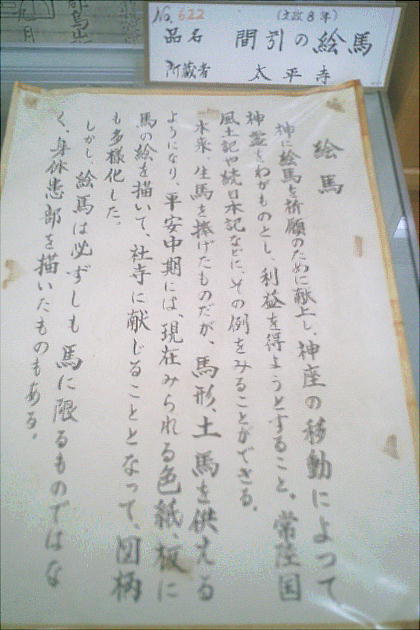 No.622
(文政8年)
品名 間引の絵馬
所蔵者 太平寺
絵馬
神に絵馬を祈願のために献上し、神座の移動によって
神霊をわがものとし、利益を得ようとすること。常陸国
風土記や続日本記などに、その例をみることができる。
本来、生馬を捧げたものだが、馬形、土馬を供える
ようになり、平安中期には、現在みられる色紙、板に
馬の絵を描いて、社寺に献じることとなって、図柄
も多様化した。
しかし、絵馬は必ずしも馬に限るものではな
く、身体患部を描いたものもある。